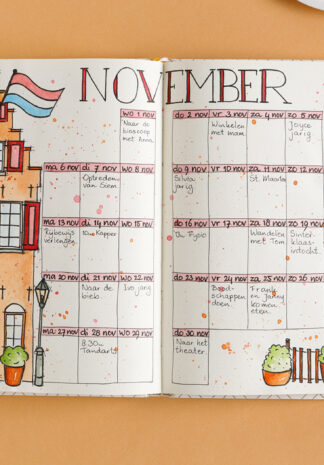 NOVEMBER
wo 1 nov
do 2 nov
vr 3 nov
za 4 nov
zo 5 nov
Naar de
bioscoop
met Anna.
Winkelen
met mam.
Joyce
jarig
ma 6 nov
di 7 nov
wo 8 nov
do 9 nov
vr 10 nov
za 11 nov
zo 12 nov
Optreden
van Siem
Silvia
jarig
St. Maarten
ma 13 nov
di 14 nov
wo 15 nov
do 16 nov
vr 17 nov
za 18 nov
zo 19 nov
Rijbewijs
verlengen
Kapper
Fysio
Wandeling
met Tom.
Sinter-
klaas-
intocht
ma 20 nov
di 21 nov
wo 22 nov
do 23 nov
vr 24 nov
za 25 nov
zo 26 nov
Naar de
bieb.
Ivo jarig
Bood-
schappen
doen.
Frank
en Janny
komen
eten.
ma 27 nov
di 28 nov
wo 29 nov
do 30 nov
8.30u
Tandarts
Naar het
theater